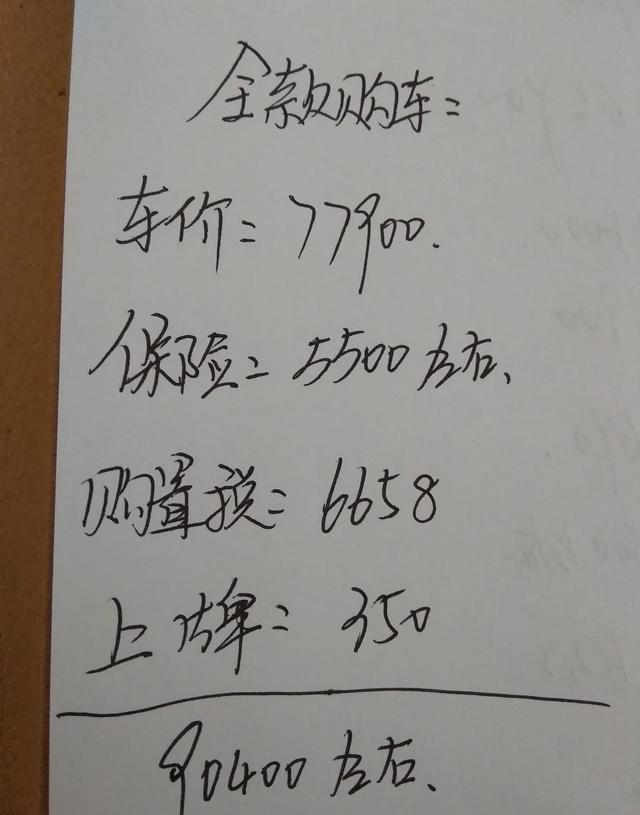 全款购车：
车价：77900.
保险：5500左右、
购置税：6658
上牌：350
90400左右、